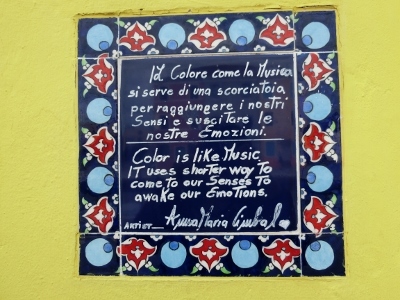 Il Colore come la Musica
si serve di una scorciatoia
per raggiungere i nostri
Sensi e suscitare le
nostre Emozioni.
Color is like Music
IT uses shorter way to
come to our Senses To
awake our Emotions.
ARTIST__ Anna Maria